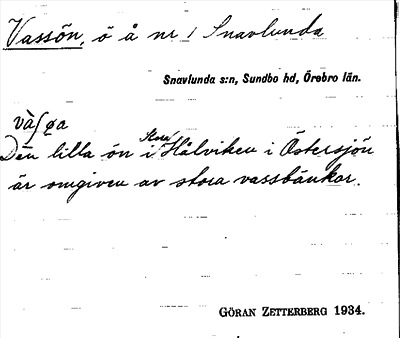 Vassön, ö å nr 1 Snavlunda
Snavlunda s:n, Sundbo hd, Örebro län.
và∫øa
Den lilla ön i Stora Hålviken i Östersjön
är omgiven av stora vassbänkar.
GÖRAN ZETTERBERG 1934.